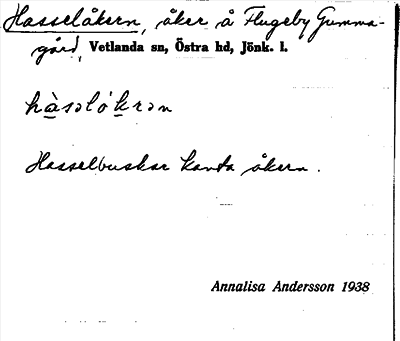 Hasselåkern, åker å Flugeby Gumma-
gård, Vetlanda sn, Östra hd, Jönk. l.
hàsəlókrən
Hasselbuskar kanta åkern.
Annalisa Andersson 1938